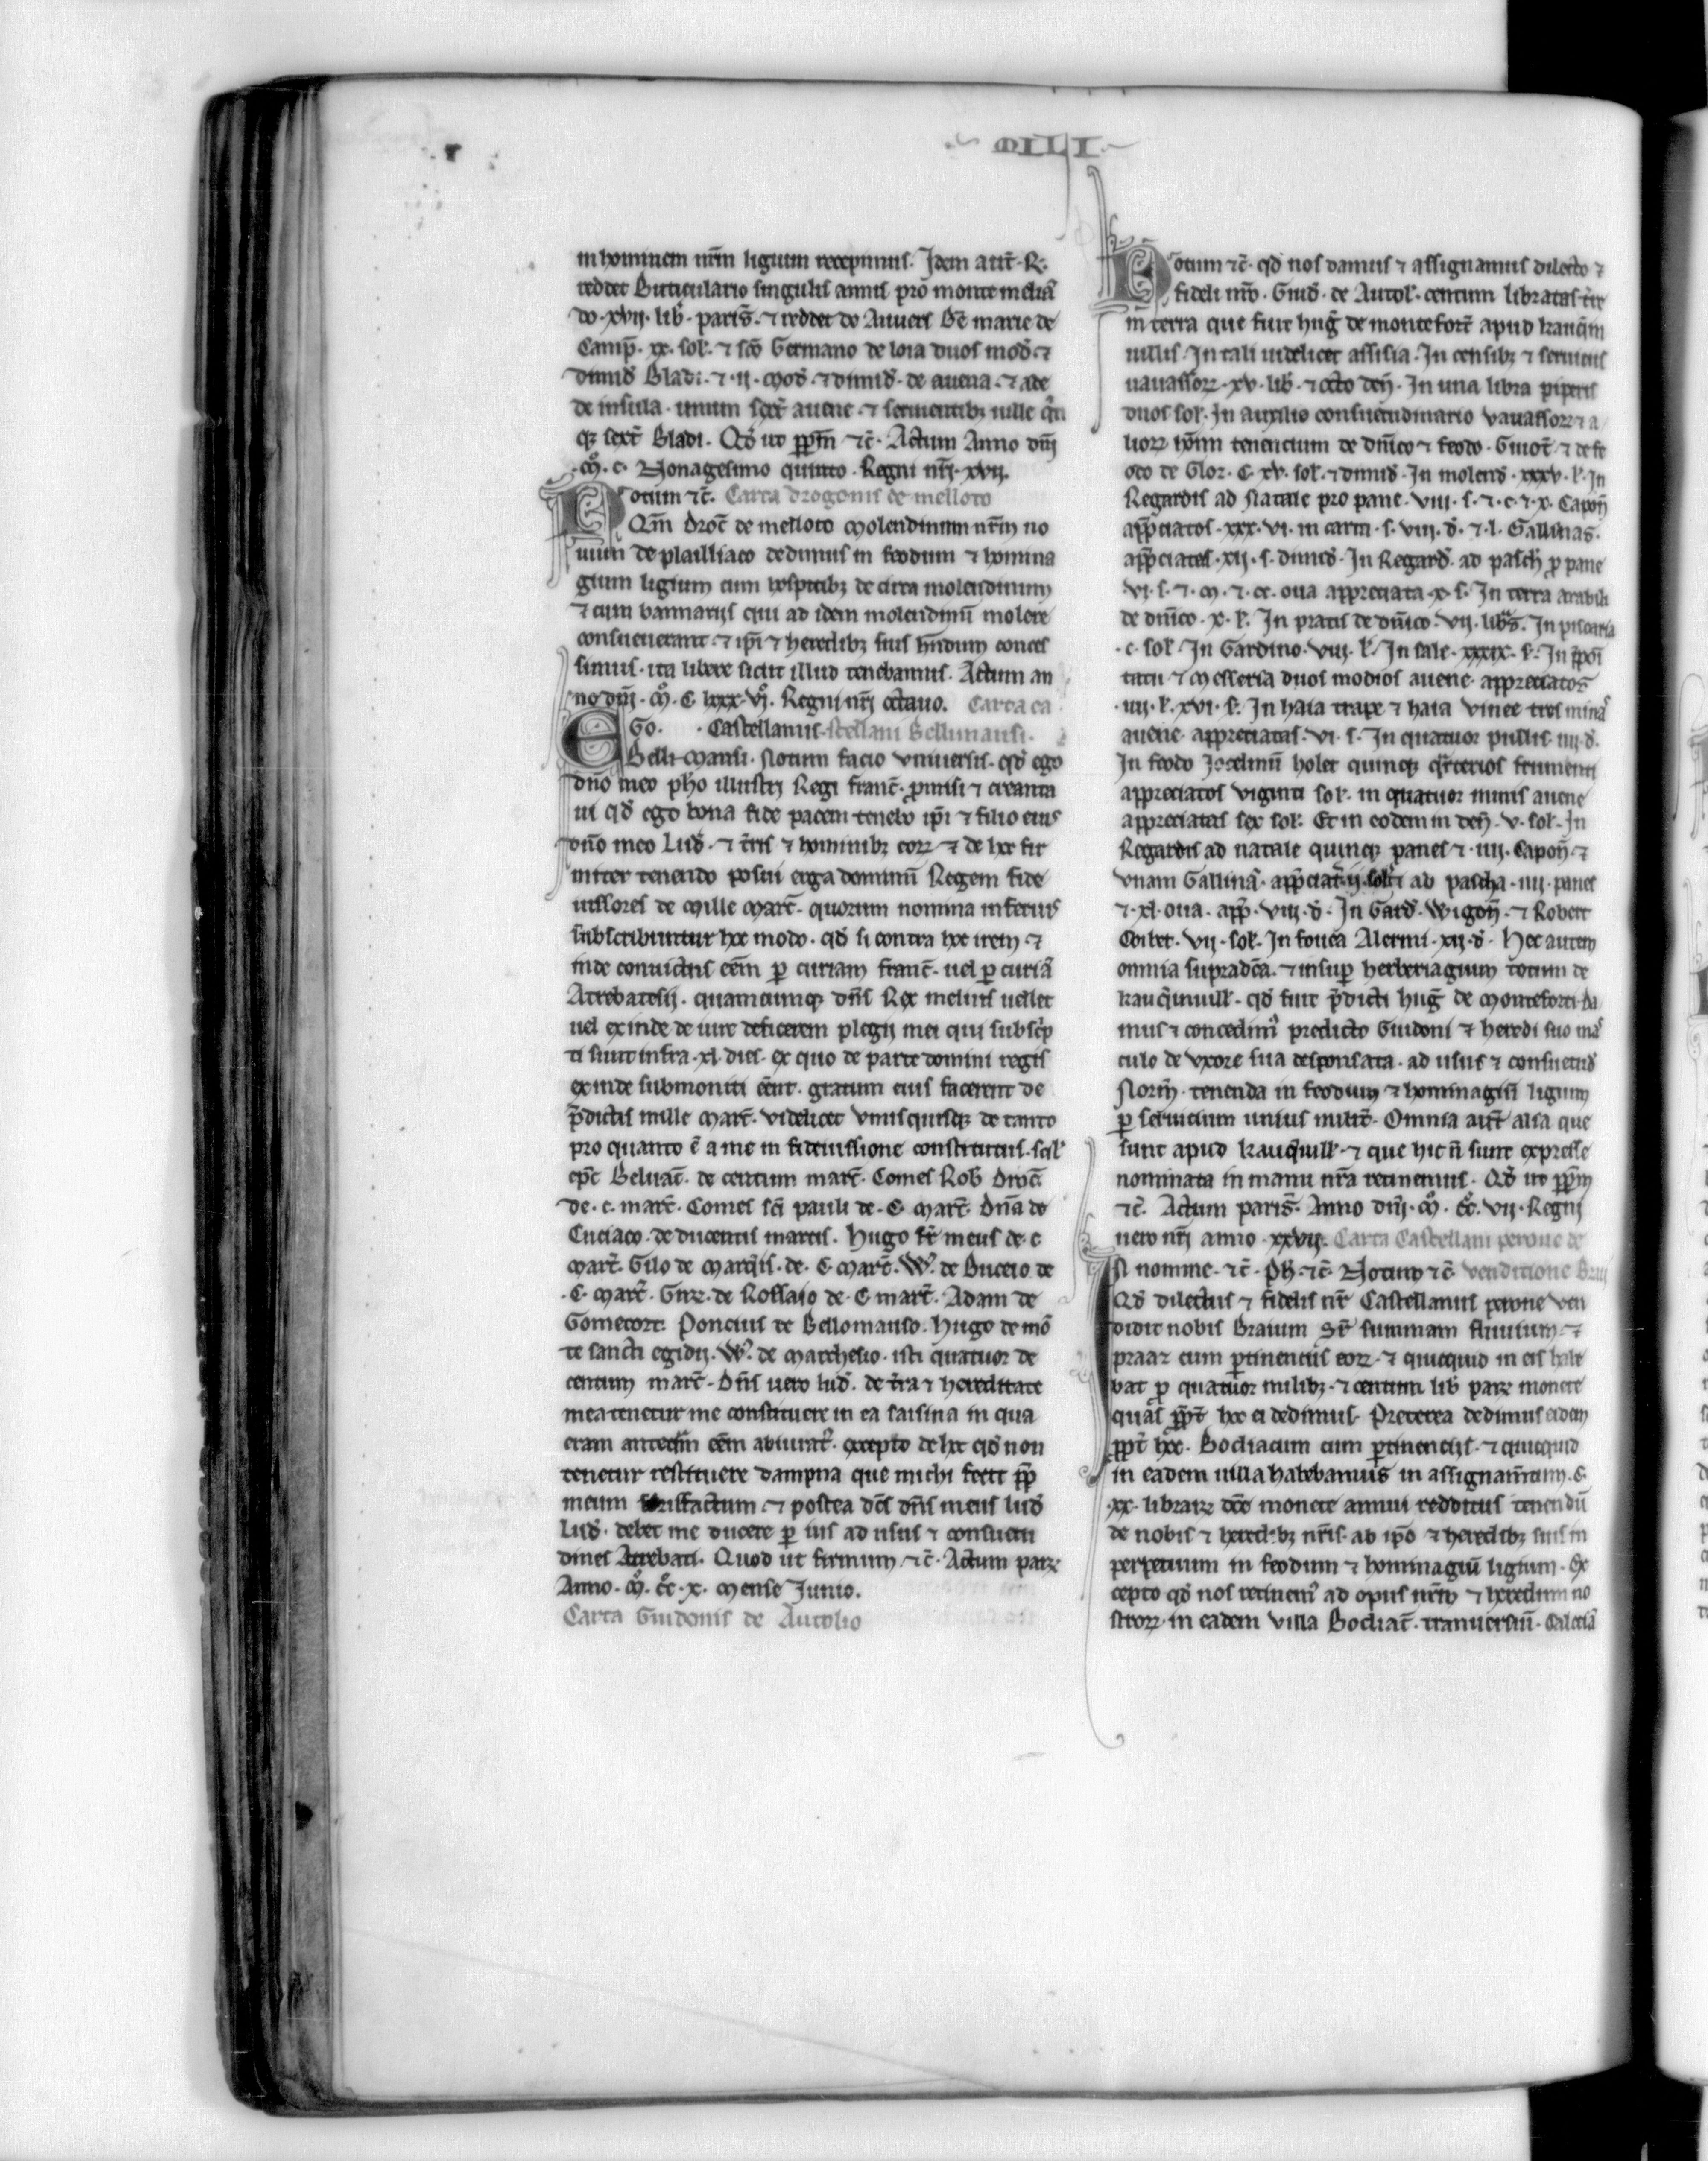 MILI
in hominem nr̄m ligium recepimus. Idem aut̄ .R.
reddet Buticulario singulis annis pro monte melia
do .xvij. lib̄. paris̄. ⁊ reddet de Auuers Be marie de
Camp̄. xx. sol. ⁊ sc̄o Germano de loia duos mod̄. ⁊
dimid̄ Bladi. ⁊ .ij. mod̄. ⁊ dimid̄. de auena. ⁊ ade
de insula. unum sext̄ auene. ⁊ seruientibz uille qin
qz sext̄ Bladi. Qd̄ ut pp̄m ⁊c̄. Actum Anno dnī
.M̊. c. Nonagesimo quinto. Regni nr̄i .xvij.
Notum ⁊c̄. Carta drogonis de melloto
Qm̄ droc̄ de melloto molendinum nr̄m no
uum de plailliaco dedimus in feodum ⁊ homina
gium ligium cum hospitibz de circa molendinum
⁊ cum bannariis qui ad idem molendinū molere
consueuerant. ⁊ ip̄i ⁊ heredibz suis hn̄dum conces
simus. ita libere sicut illud tenebamus. Actum an
no dnī. M̊. C. lxxx. vj. Regni nr̄i octauo. Carta ca
EGo. . Castellanus. stellani Bellimansi.
Belli mansi. Notum facio vniuersis. qd̄ ego
dn̄o meo pho illustri Regi franc̄. promisi ⁊ creanta
ui qd̄ ego bona fide pacem tenebo ip̄i ⁊ filio eius
dn̄o meo Lud̄. ⁊ t̄ris ⁊ hominibz eorz ⁊ de hoc fir
miter tenendo posui erga dominū Regem fide
iussores de mille marc̄. quorum nomina inferius
subscribuntur hoc modo. qd̄ si contra hoc irem ⁊
inde conuictus eēm p curiam franc̄. uel p curiā
Atrebatesij. quamcumqz dn̄s Rex melius uellet
uel exinde de iure deficerem plegij mei qui subscr̄p
ti sunt infra .xl. dies. ex quo de parte domini regis
exinde submoniti eēnt. gratum eius facerent de
p̄dictis mille marc̄. videlicet vnusquisqz de tanto
pro quanto ē a me in fideiussione constitutus. scil
ep̄c Beluac̄. de centum marc̄. Comes Rob̄ droc̄.
de .c. marc̄. Comes sc̄i pauli de .C. marc̄. dn̄a de
Cuciaco. de ducentis marcis. Hugo fr̄ meus de .c
marc̄. Gilo de marq̄is. de .C. marc̄. W'. de Buceio de
.C. marc̄. Girz. de Rossaio de .C. marc̄. Adam de
Gomecort. Poncius de Bellomanso. Hugo de mō
te sancti egidij. W'. de marchesio. isti quatuor de
centum marc̄. Dn̄s uero lud̄. de t̄ra ⁊ hereditate
mea tenetur me constituere in ea saisina in qua
eram anteq̄m eēm abiurat̄. excepto de hoc qd̄ non
tenetur restituere dampna que michi fecit pp̄
meum forisfactum. ⁊ postea dc̄s dn̄s meus lud̄
Lud̄. debet me ducere p ius ad usus ⁊ consuetu
dines Atrebati. Quod ut firmum. ⁊c̄. Actum parz
Anno. M̊. c̊c. x. mense Junio.
Carta Guidonis de Autolio
Notum ⁊c̄. qd̄ nos damus ⁊ assignamus dilecto ⁊
fideli nr̄o. Guid̄. de Autol̄. centum libratas t̄re
in terra que fuit huḡ de montefort̄ apud krauq̄in
uillis. In tali uidelicet assisia. In censibz ⁊ seruiciis
uauassorz. xv. lib̄. ⁊ octo den̄. In una libra piperis
duos sol. In auxilio consuetudinario vauassorz ⁊ a
liorz ho̅im tenencium de dn̄ico ⁊ feodo. Guiot̄. ⁊ de fe
odo de Glor. C. xv. sol. ⁊ dimid̄. In molend̄. xxxv. l. In
Regardis ad Natale pro pane. viij. s. ⁊ .c. ⁊ .x. Capon̄
app̄ciatos. xxx. vi. in carn. s. viij. d̄. ⁊ .l. Gallinas.
app̄ciatas. xij. s. dimid̄. In Regard̄. ad pasch̄. p pane
vi. s. ⁊ .M. ⁊ .cc. oua appreciata .x. s. In terra arabili
de dn̄ico. x. l. In pratis de dn̄ico. vij. libs̄. In piscaria
.c. sol. In Gardino. viij. l. In sale. xxxix. s. In p̄poi
tatu ⁊ messeria duos modios auene. appreciatos
.iiij. l. xvi. s. In haia trape ⁊ haia vinee tres minas
auene. appreciatas. vi. s. In quatuor pullis. iiij. d̄.
In feodo Jocelinū holet quinqz q̄rterios frumenti
appreciatos viginti sol. in quatuor minis auene
appreciatas sex sol. Et in eodem in den̄. v. sol. In
Regardis ad natale quinqz panes ⁊ .iiij. Capon̄. ⁊
vnam Gallinā. app̄ciat̄. ij. sol. ⁊ ad pascha. iiij. panes
⁊ .xl. oua. app̄. viij. d̄. In Gard̄. Wigon̄. ⁊ Robert
Coilet. vij. sol. In fouea Alermi. xij. d̄. Hec autem
omnia supradc̄a. ⁊ insup herbergagium totum de
krauq̄inuill. qd̄ fuit p̄dicti huḡ de monteforti. da
mus ⁊ concedim' predicto Guidoni ⁊ heredi suo mas
culo de vxore sua desponsata. ad usus ⁊ consuetud̄
Norm̄. tenenda in feodum ⁊ hominagiū ligium
p seruicium unius milit̄. Omnia aut̄ alia que
sunt apud krauq̄uill. ⁊ que hic n̄ sunt expresse
nominata in manu nr̄a retinemus. Qd̄ ut pp̄m
⁊c̄. Actum paris̄. Anno dnī. M̊. c̊c. vij. Regni
uero nr̄i anno .xxvij. Carta Castellani perone de
IN nomine. ⁊c̄. Ph̄. ⁊c̄. Notum ⁊c̄ venditione Brai
Qd̄ dilectus ⁊ fidelis nr̄ Castellanus perone ven
didit nobis Braium Sr̄ summam fluuium. ⁊
praaz cum ptinenciis eorz. ⁊ quicquid in eis habe
bat p quatuor milibz. ⁊ centum lib̄ parz monete
quas pp̄t̄ hoc ei dedimus. Preterea dedimus eidem
pp̄t̄ hoc. Bochiacum cum ptinenciis. ⁊ quicquid
in eadem uilla habebamus in assignam̄tum .C.
.xx. librarz dc̄e monete annui redditus tenendū
de nobis ⁊ heredibz nr̄is. ab ip̄o ⁊ heredibz suis in
perpetuum in feodum ⁊ hominagiū ligium. Ex
cepto qd̄ nos retinem' ad opus nr̄m ⁊ heredum no
strorz in eadem villa Bochiac̄. tranuersiū. Calceiā